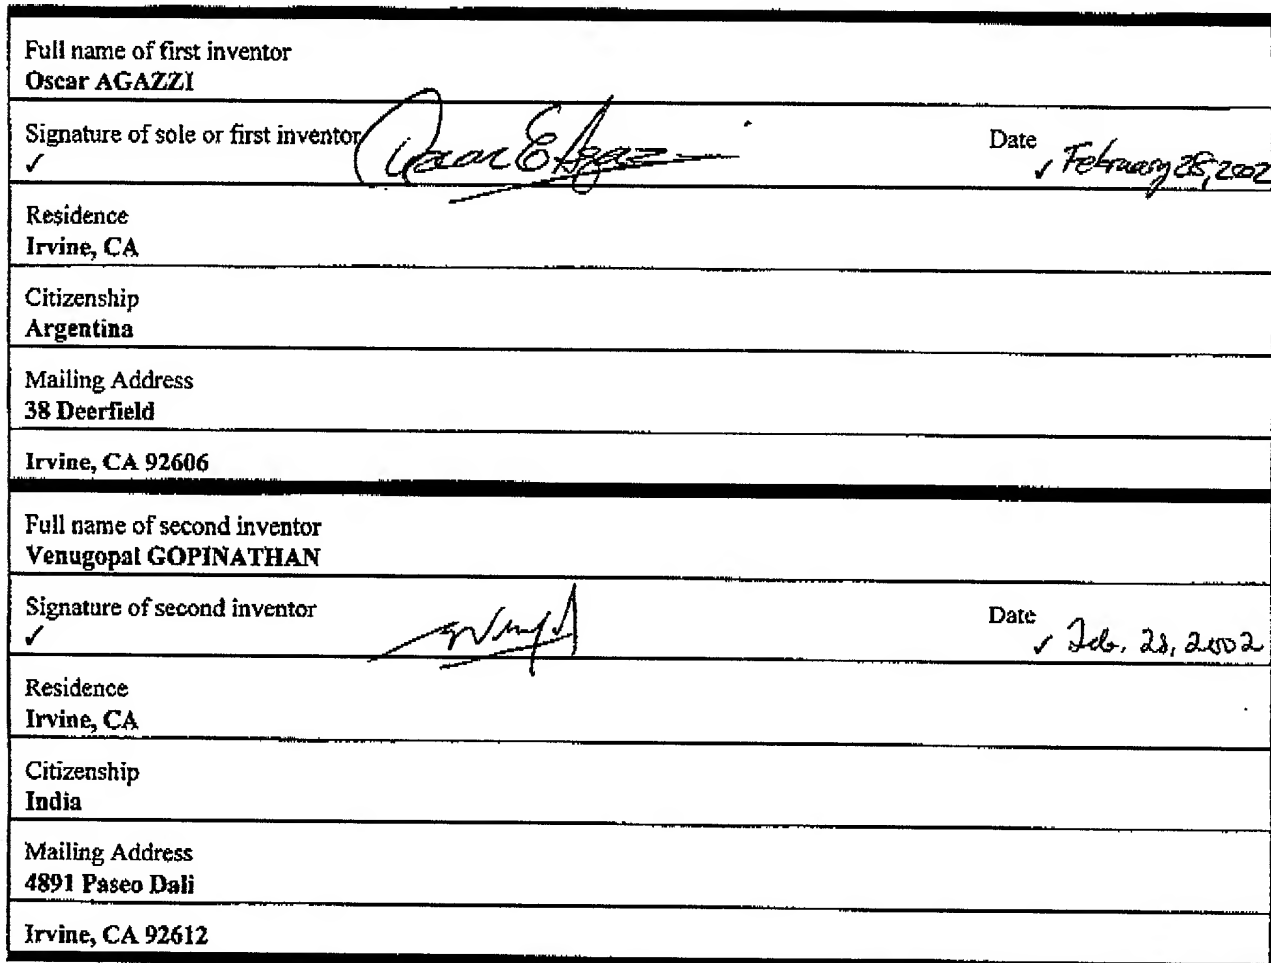 Full name of first inventor
Oscar AGAZZI
Signature of sole or first inventor
Date
✓
Oscar E Agazzi
✓ February 28, 2002
Residence
Irvine, CA
Citizenship
Argentina
Mailing Address
38 Deerfield
Irvine, CA 92606
Full name of second inventor
Venugopal GOPINATHAN
Signature of second inventor
Date
✓
✓ Feb. 28, 2002
Residence
Irvine, CA
Citizenship
India
Mailing Address
4891 Paseo Dali
Irvine, CA 92612